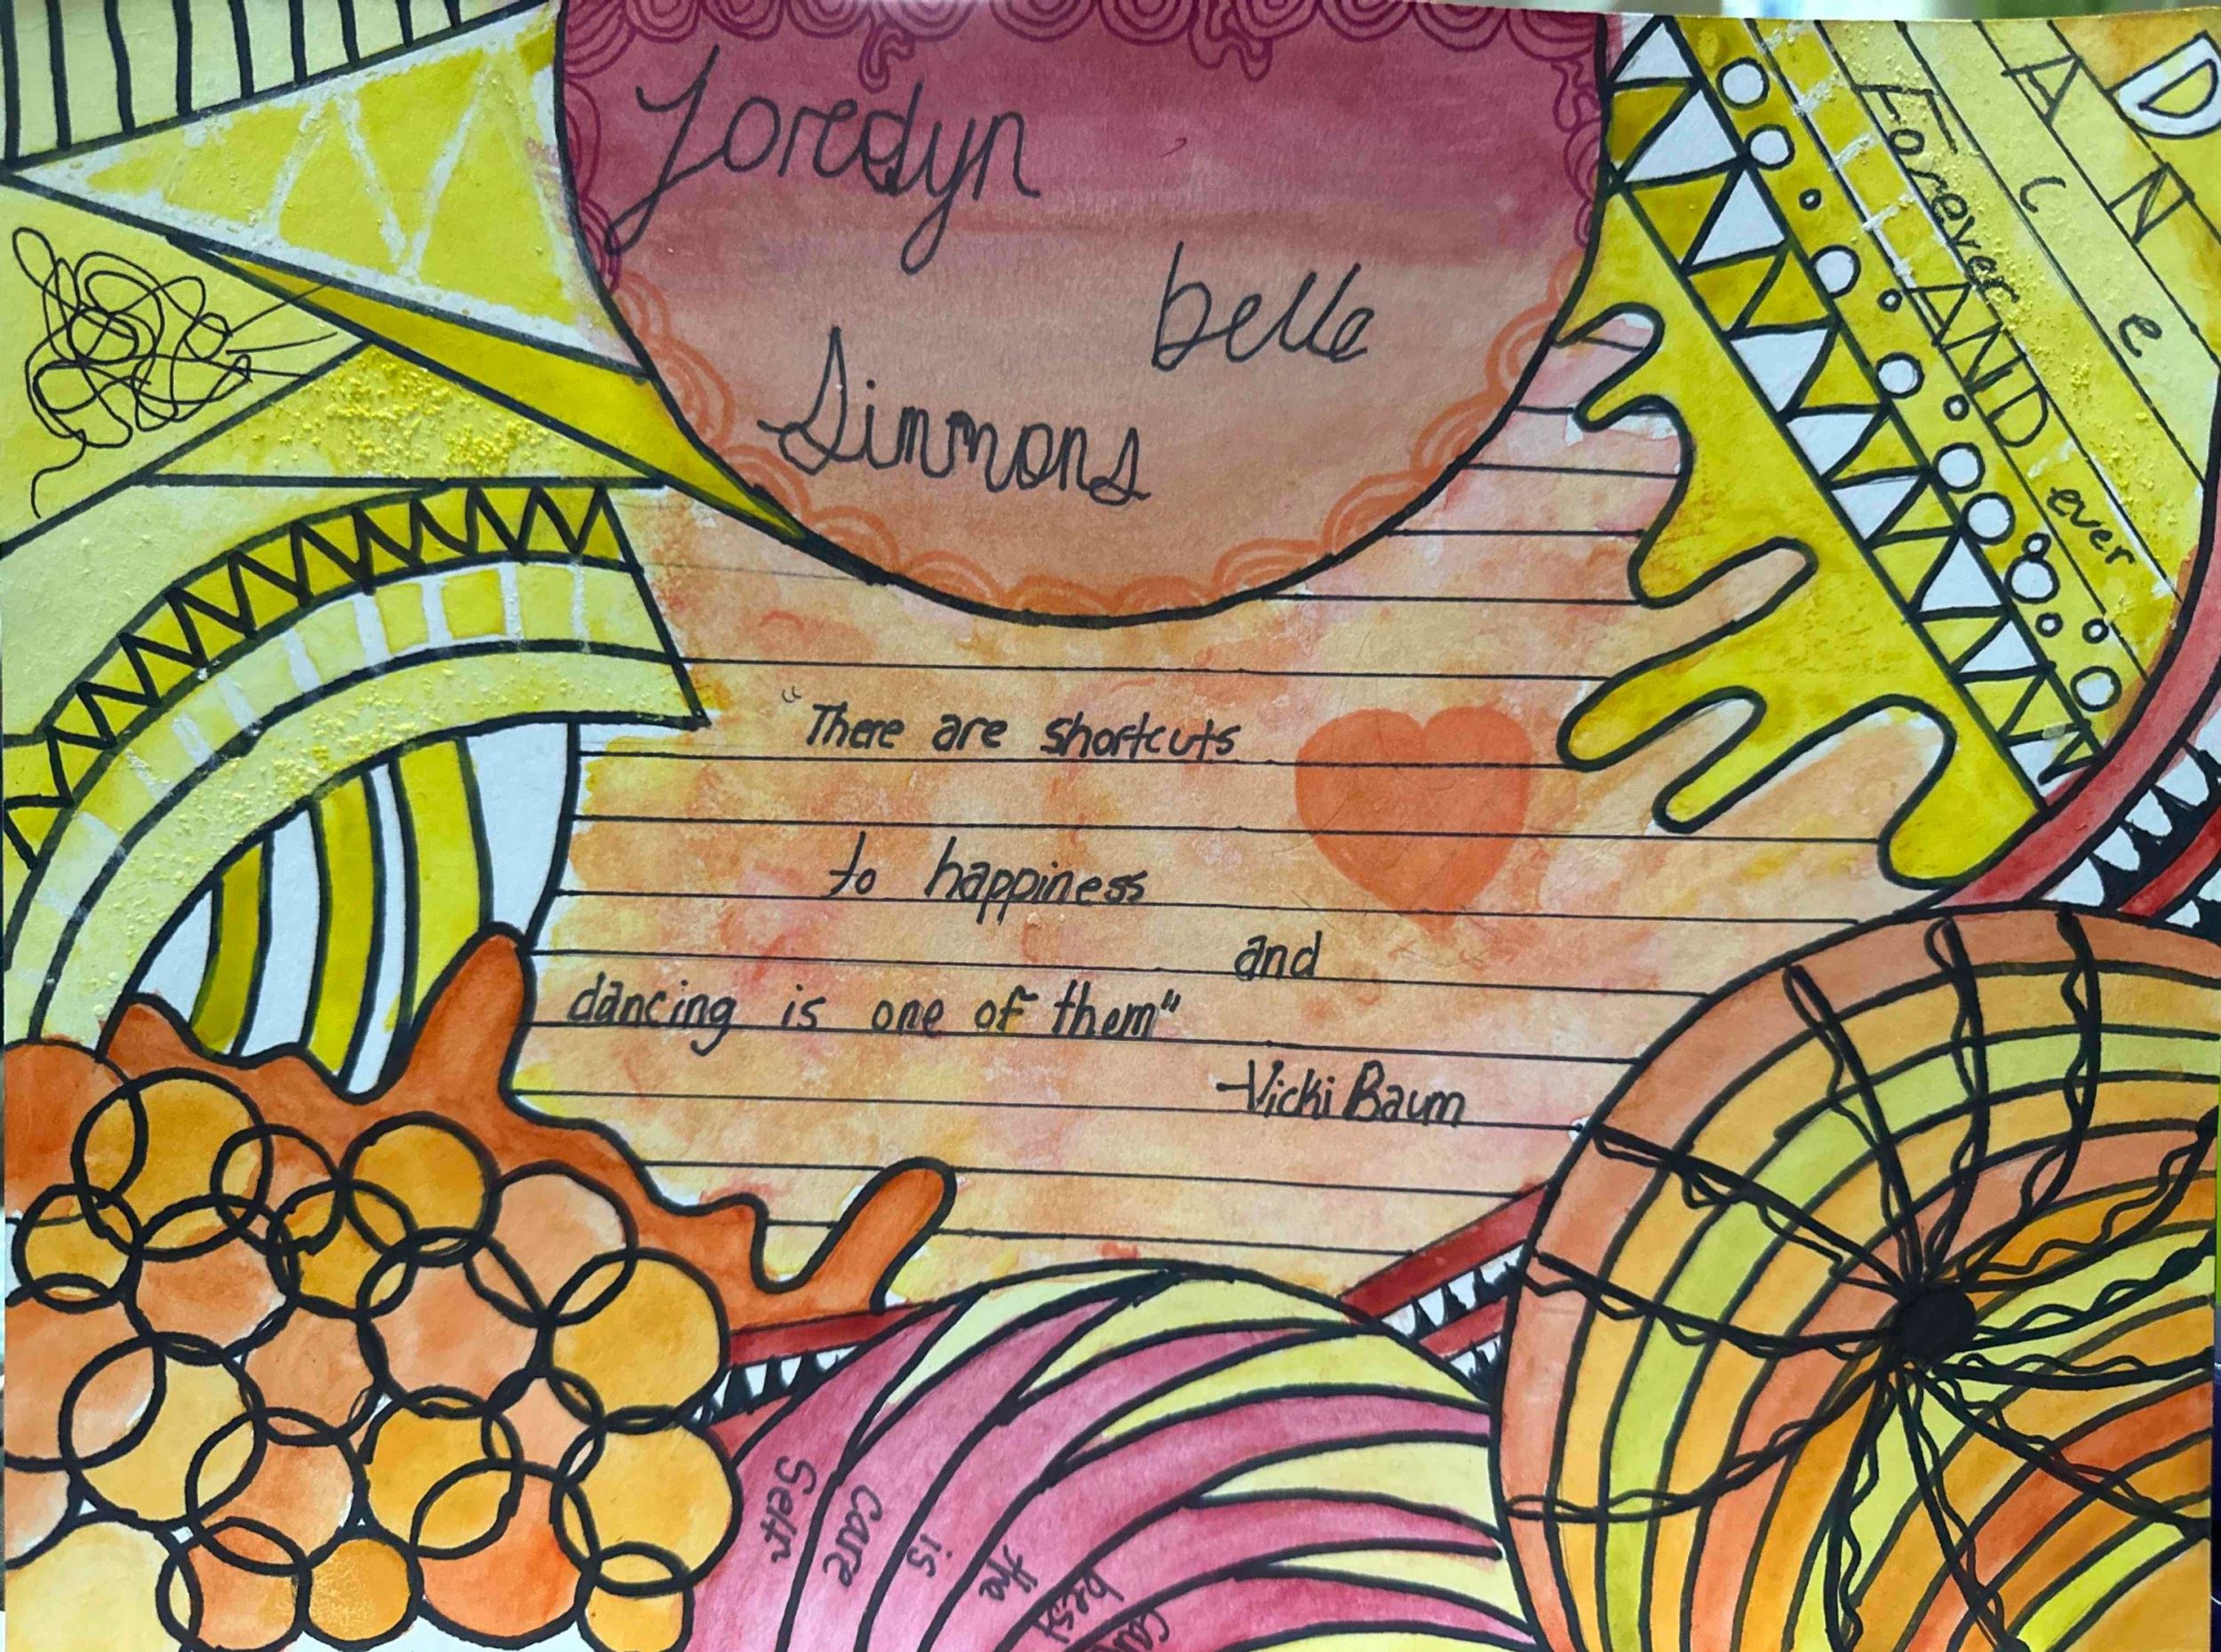 Joredyn
belle
Simmons
DANCe
Forever AND ever
"There are shortcuts
to happiness
and
dancing is one of them"
-Vicki Baum
Self
care
is
the
best